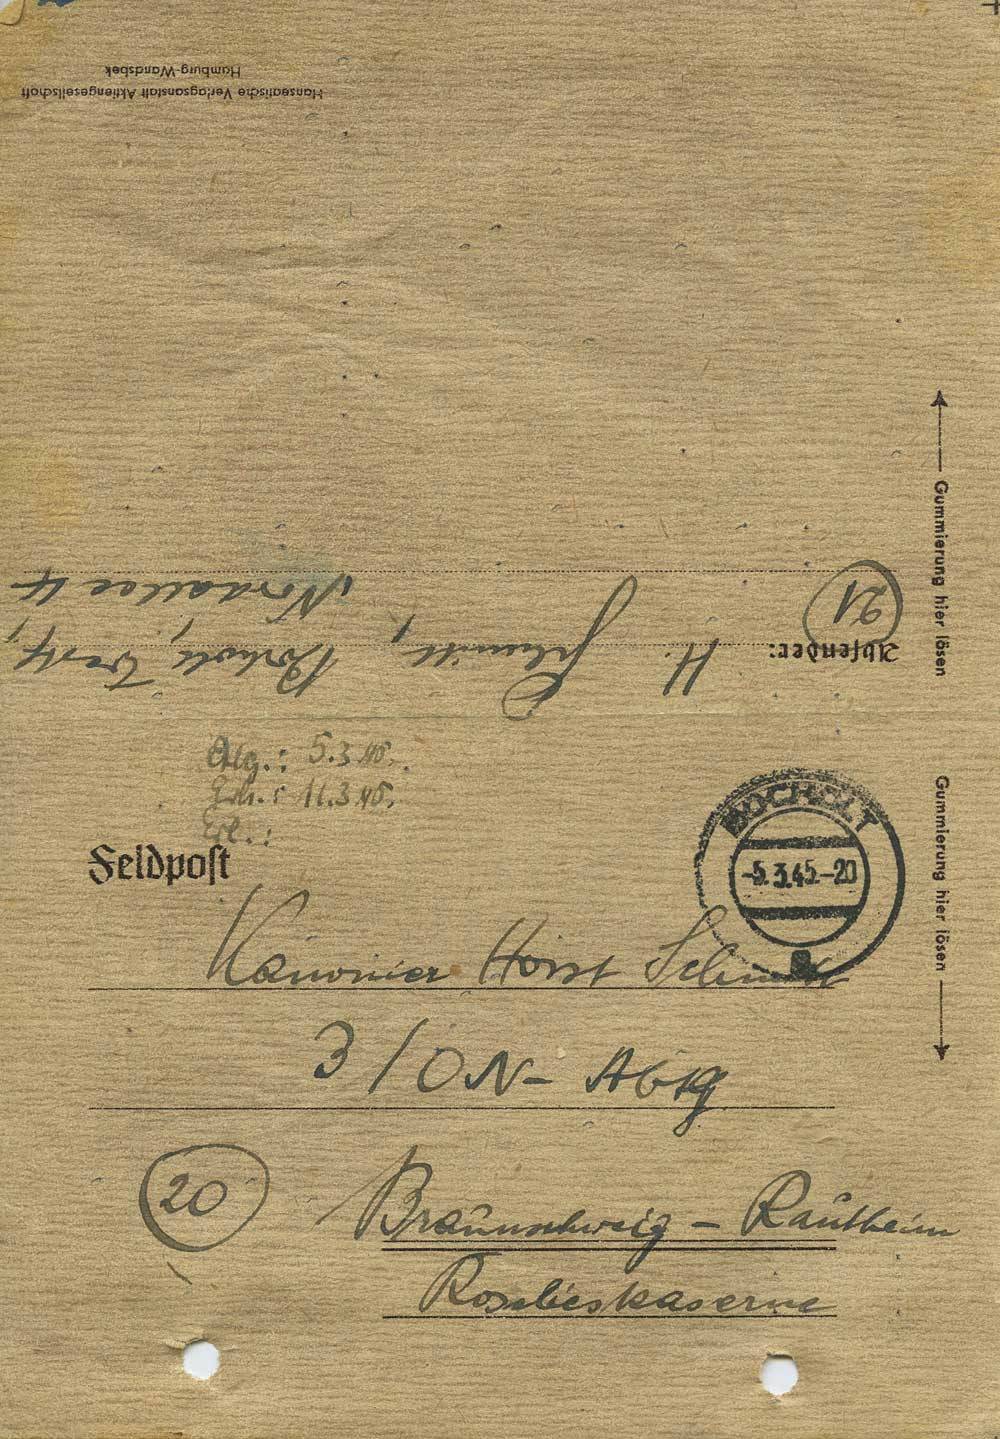 Hanseatische Verlagsanstalt Aktiengesellschaft
Hamburg-Wandsbek
Gummierung hier lösen
Absender: H. Schmitt, Bocholt Westf,
21
Nordallee 4
Abg.: 5.3.45.
11.3.45.
Erl.:
Feldpost
BOCHOLT
-5.3.45.-20
Gummierung hier lösen
Kanonier Horst Schmitt
3/ON- Abtg
20 Braunschweig - Rautheim
Roselieskaserne